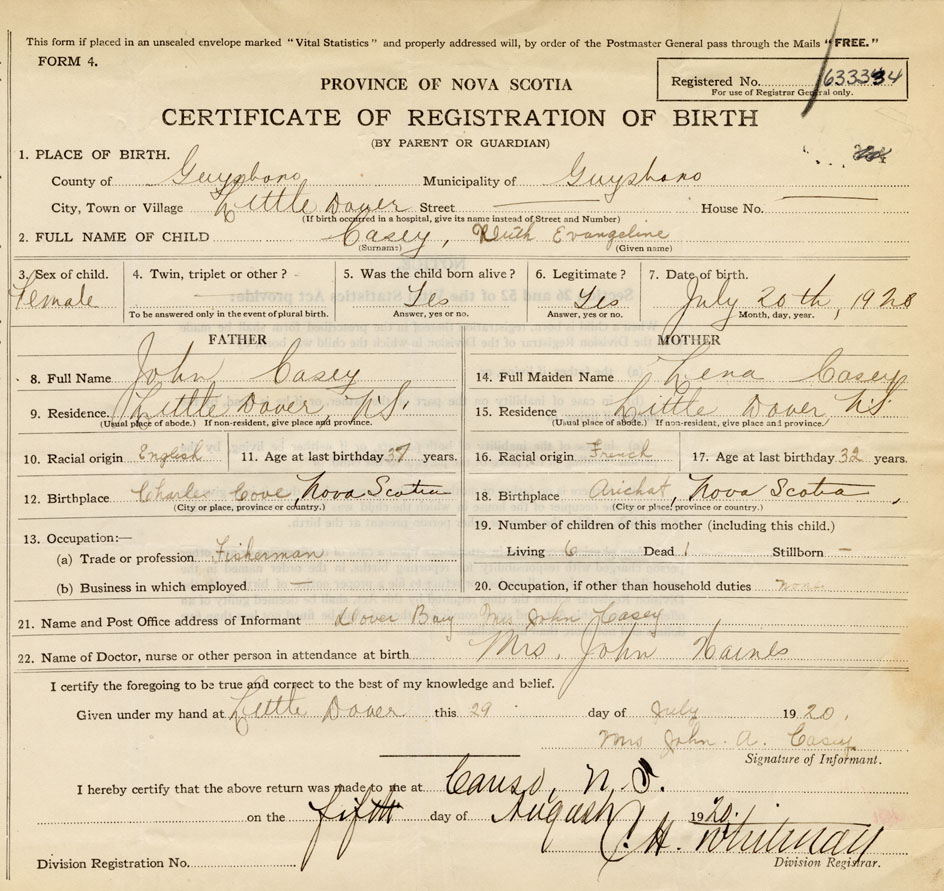 This form if placed in an unsealed envelope marked "Vital Statistics" and properly addressed will, by order of the Postmaster General pass through the Mails "FREE."
FORM 4.
PROVINCE OF NOVA SCOTIA
Registered No. 633334
For use of Registrar General only.
CERTIFICATE OF REGISTRATION OF BIRTH
(BY PARENT OR GUARDIAN)
1. PLACE OF BIRTH.
County of Guysboro Municipality of Guysboro
City, Town or Village Little Dover Street House No.
(If birth occurred in a hospital, give its name instead of Street and Number)
2. FULL NAME OF CHILD Casey, Ruth Evangeline
(Surname) (Given name)
3. Sex of child. 4. Twin, triplet or other? - 5. Was the child born alive? 6. Legitimate? 7. Date of birth.
Female Yes Yes July 20th, 1920
To be answered only in the event of plural birth. Answer, yes or no. Answer, yes or no. Month, day, year.
FATHER MOTHER
8. Full Name John Casey 14. Full Maiden Name Lena Casey
9. Residence. Little Dover, N.S. 15. Residence Little Dover NS
(Usual place of abode.) If non-resident, give place and province. (Usual place of abode.) If non-resident, give place and province.
10. Racial origin English 11. Age at last birthday 37 years. 16. Racial origin French 17. Age at last birthday 32 years.
12. Birthplace Charles Cove, Nova Scotia 18. Birthplace Arichat, Nova Scotia,
(City or place, province or country.) (City or place, province or country.)
13. Occupation:— 19. Number of children of this mother (including this child.)
(a) Trade or profession Fisherman Living 6 Dead 1 Stillborn —
(b) Business in which employed — 20. Occupation, if other than household duties none
21. Name and Post Office address of Informant Dover Bay Mrs John Casey
22. Name of Doctor, nurse or other person in attendance at birth Mrs. John Haines
I certify the foregoing to be true and correct to the best of my knowledge and belief.
Given under my hand at Little Dover this 29 day of July 1920.
Mrs John. A. Casey
Signature of Informant.
I hereby certify that the above return was made to me at Canso, N.S.
on the fifth day of August 1920.
C. H. Whitman
Division Registration No. Division Registrar.